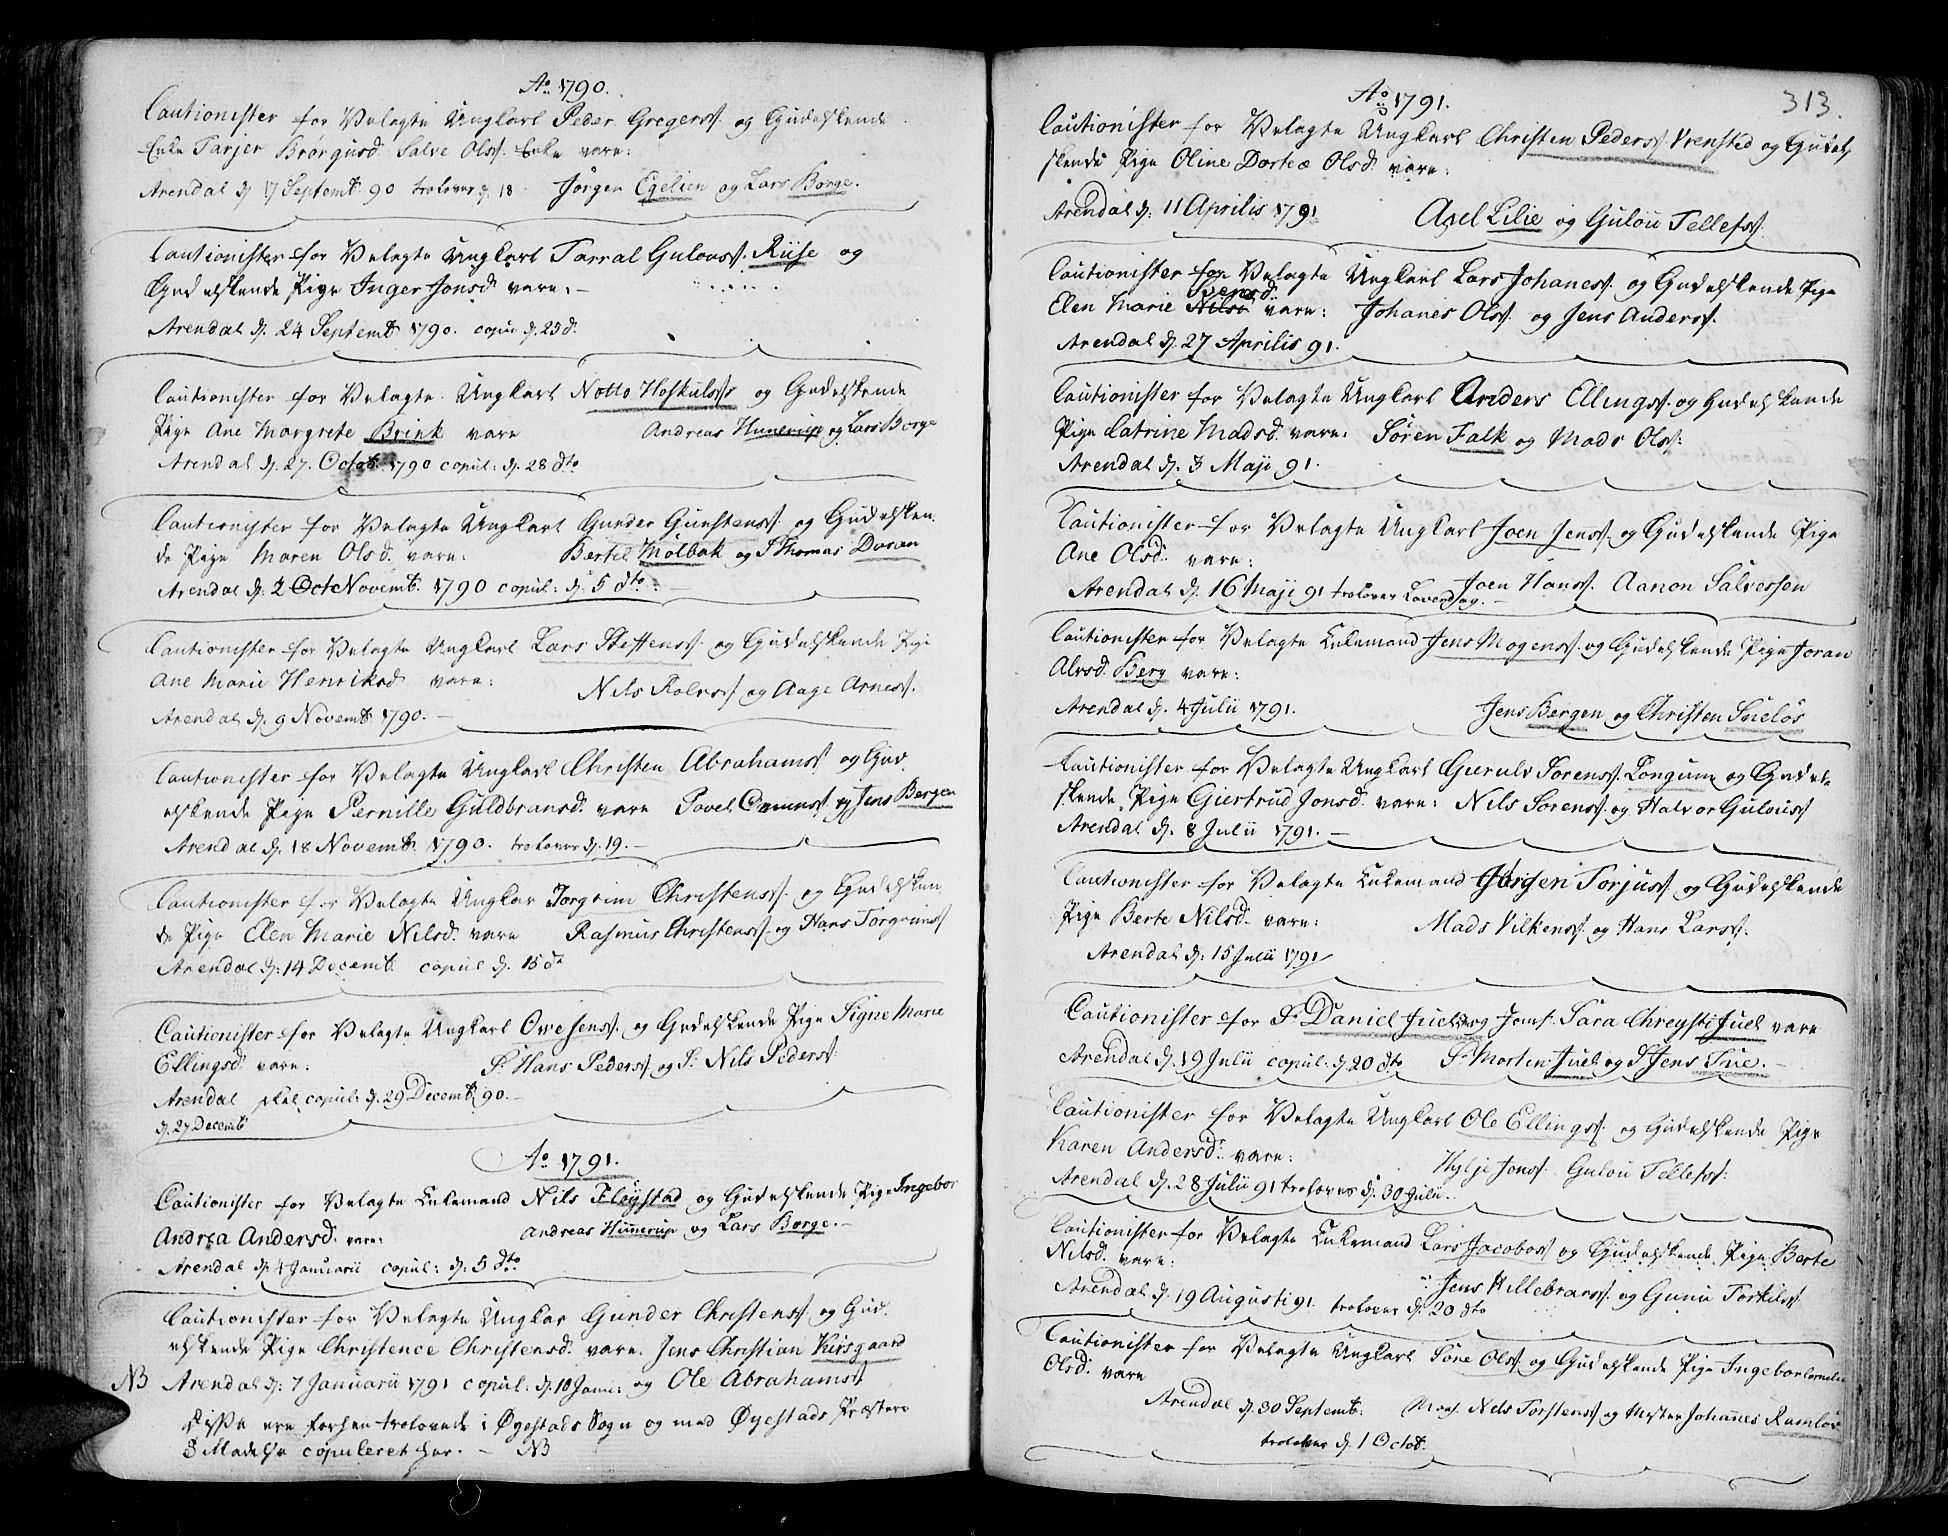 Ao 1790.
Cautionister for Velagte Ungkarl Peder Gregerss. og Gudelskende
Enke Tarjer Brørgusd. Salve Olss. Enke vare:
Arendal d. 17 Septemb. 90 trolover d. 18 Jørgen Egelien og Lars Borge.
Cautionister for Velagte Ungkarl Tarral Gulouss. Riise og
Gudelskende Pige Inger Jonsd. vare:
Arendal d. 24 Septemb. 1790. copul: d. 25 d.
Cautionister for Velagte Ungkarl Notto Hofkulss og Gudelskende
Pige Ane Margrete Brink vare Andreas Hunerup og Lars Borge
Arendal d. 27. Octob. 1790 copul: d. 28 dto
Cautionister for Velagte Ungkarl Gunder Gunstenss. og Gudelsken,
de Pige Maren Olsd. vare: Bertel Mølbak og S. Thomas Daran
Arendal d: 2 Oct Novemb. 1790 copul: d: 5 dto.
Cautionister for Velagte Ungkarl Lars Steffenss. og Gudelskende Pige
Ane Marie Henriksd vare: Nils Rolvss og Aage Arness.
Arendal d. 9 Novemb. 1790.
Cautionister for Velagte Ungkarl Christen Abrahamss. og Gud,
elskende Pige Pernille Guldbransd. vare Povel og Jens Bergen
Arendal d. 18 Novemb. 1790. trolover d. 19.
Cautionister for Velagte Ungkar Torgrim Christenss. og Gudelsken,
de Pige Elen Marie Nilsd. vare Rasmus Christenss. og Hans Torgrimss
Arendal d: 14 Decemb. copul d. 15 dt
Cautionister for Velagte Ungkarl Owe Jenss. og Gudelskende Pige Signe Marie
Ellingsd. vare: S. Hans Pederss og S. Nils Pederss.
Arendal skal copul: d. 29 Decemb. 90.
d. 27 Decemb
Ao 1791.
Cautionister for Velagte Enkemand Nils Fløystad og Gudelskende Pige Ingebor
Andrea Andersd. vare: Andreas Hunerup og Lars Borge.
Arendal d. 4 Januarii copul: d: 5 dto
Cautionister for Velagte Ungkar Gunder Christenss. og Gud,
elskende Pige Christence Christensd. vare. Jens Christian Kirsgaard
NB Arendal d: 7 Januarii 1791 copul: d. 10 Janu: og Ole Abrahamss
disse ere forhen trolovede i Øyestads Sogn og med Øyestads Præstens
Madelse copuleret her. NB
313.
Ao 1791.
Cautionister for Velagte Ungkarl Christen Pederss. Vrensted og Gudel,
skende Pige Oline Dorteæ Olsd. vare:
Arendal d: 11 Aprilis 1791 Axel Lilie og Gulou Tellefss.
Cautionister for Velagte Ungkarl Lars Johaness. og Gudelskende Pige
Svensd.
Elen Marie Nilsd vare: Johanes Olss. og Jens Anderss.
Arendal d. 27 Aprilis 91.
Cautionister for Velagte Ungkarl Anders Ellingss. og Gudelskende
Pige Catrine Madsd. vare: Søren Falk og Mads Olss.
Arendal d. 3 Maji 91.
Cautionister for Velagte Ungkarl Joen Jenss. og Gudelskende Pige
Ane Olsd. vare: Joen Hanss. Aanon Salvessen
Arendal d. 16 Maji 91 trolover Løverdag.
Cautionister for Velagte Enkemand Jens Mogenss. og Gudelskende Pige Joran
Alvsd. Berg vare:
Arendal d. 4 Julii 1791. Jens Bergen og Christen Sneløs
Cautionister for Velagte Ungkarl Gunulv Sorenss. Longum og Gudel,
skende Pige Giertrud Jonsd. vare: Nils Sorenss. og Halvor Gulouss
Arendal d. 8 Julii 1791.
Cautionister for Velagte Enkemand Jørgen Torjuss. og Gudelskende
Pige Berte Nilsd. vare: Mads Vilkenss. og Hans Larss.
Arendal d: 15 Julii 1791
Cautionister for S. Daniel Juel og Jomf. Sara Chreysti Juel vare
Arendal d. 19 Julii copul: d. 20 dto S. Morten Juel og S. Jens Tue.
Cautionister for Velagte Ungkarl Ole Ellingss. og Gudelskende Pige
Karen Andersd. vare: Hylje Jonss. Gulou Tellefss:
Arendal d. 28 Julii 91 troloves d. 30 Julii.
Cautionister for Velagte Enkemand Lars Jacobss og Gudelskende Pige Berte
Nilsd. vare: Jens Hillebranss. og Gunu Torkilss
Arendal d. 19 Augusti 91. trolover d. 20 dto
Cautionister for Velagte Ungkarl Søne Olss. og Gudelskende Pige Ingebor Cornelia
Olsd. vare
Arendal d. 30 Septemb: Mons. Nels Torstenss og Mester Johannes Ramløv
trolover d. 1 Octob.